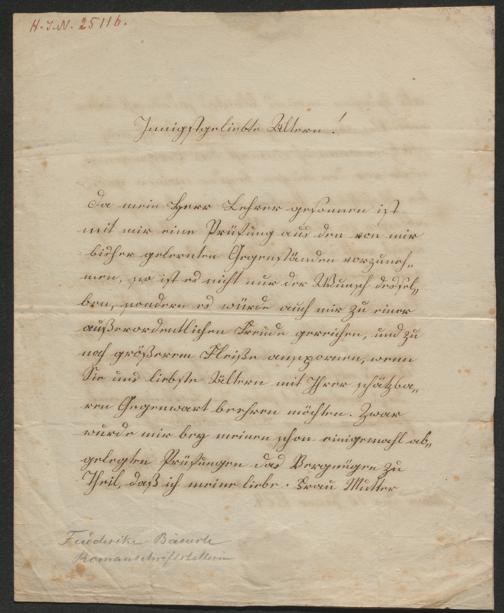 H.I.N. 25116.
Innigstgeliebte Ältern!
Da mein Herr Lehrer gesonnen ist
mit mir eine Prüfung aus den von mir
bisher gelernten Gegenständen vorzuneh-
men, so ist es nicht nur der Wunsch dessel-
ben, sondern es würde auch mir zu einer
außerordentlichen Freude gereichen, und zu
noch größerem Fleiße anspornen, wenn
Sie uns liebste Ältern mit Ihrer schätzba-
ren Gegenwart beehren möchten. Zwar
wurde mir bey meinen schon einigemahl ab-
gelegten Prüfungen das Vergnügen zu
Theil, daß ich meine liebe Frau Mutter
Friederike Bäuerle
Romanschriftstellerin